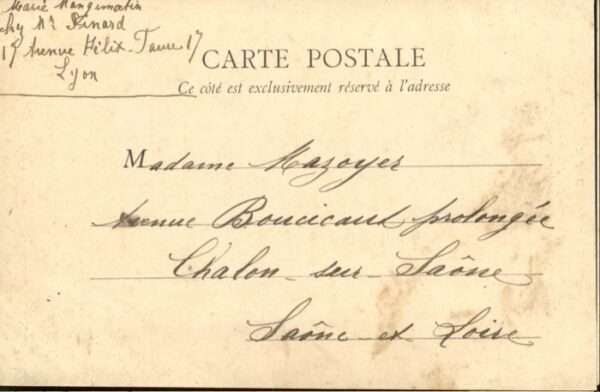 Marie Mangematin
chy Mr Pinard
17 Avenue Félix-Faure 17
Lyon
CARTE POSTALE
Ce côté est exclusivement réservé à l'adresse
Madame Mazoyer
Avenue Boucicaut prolongée
Chalon-sur-Saône
Saône-et Loire